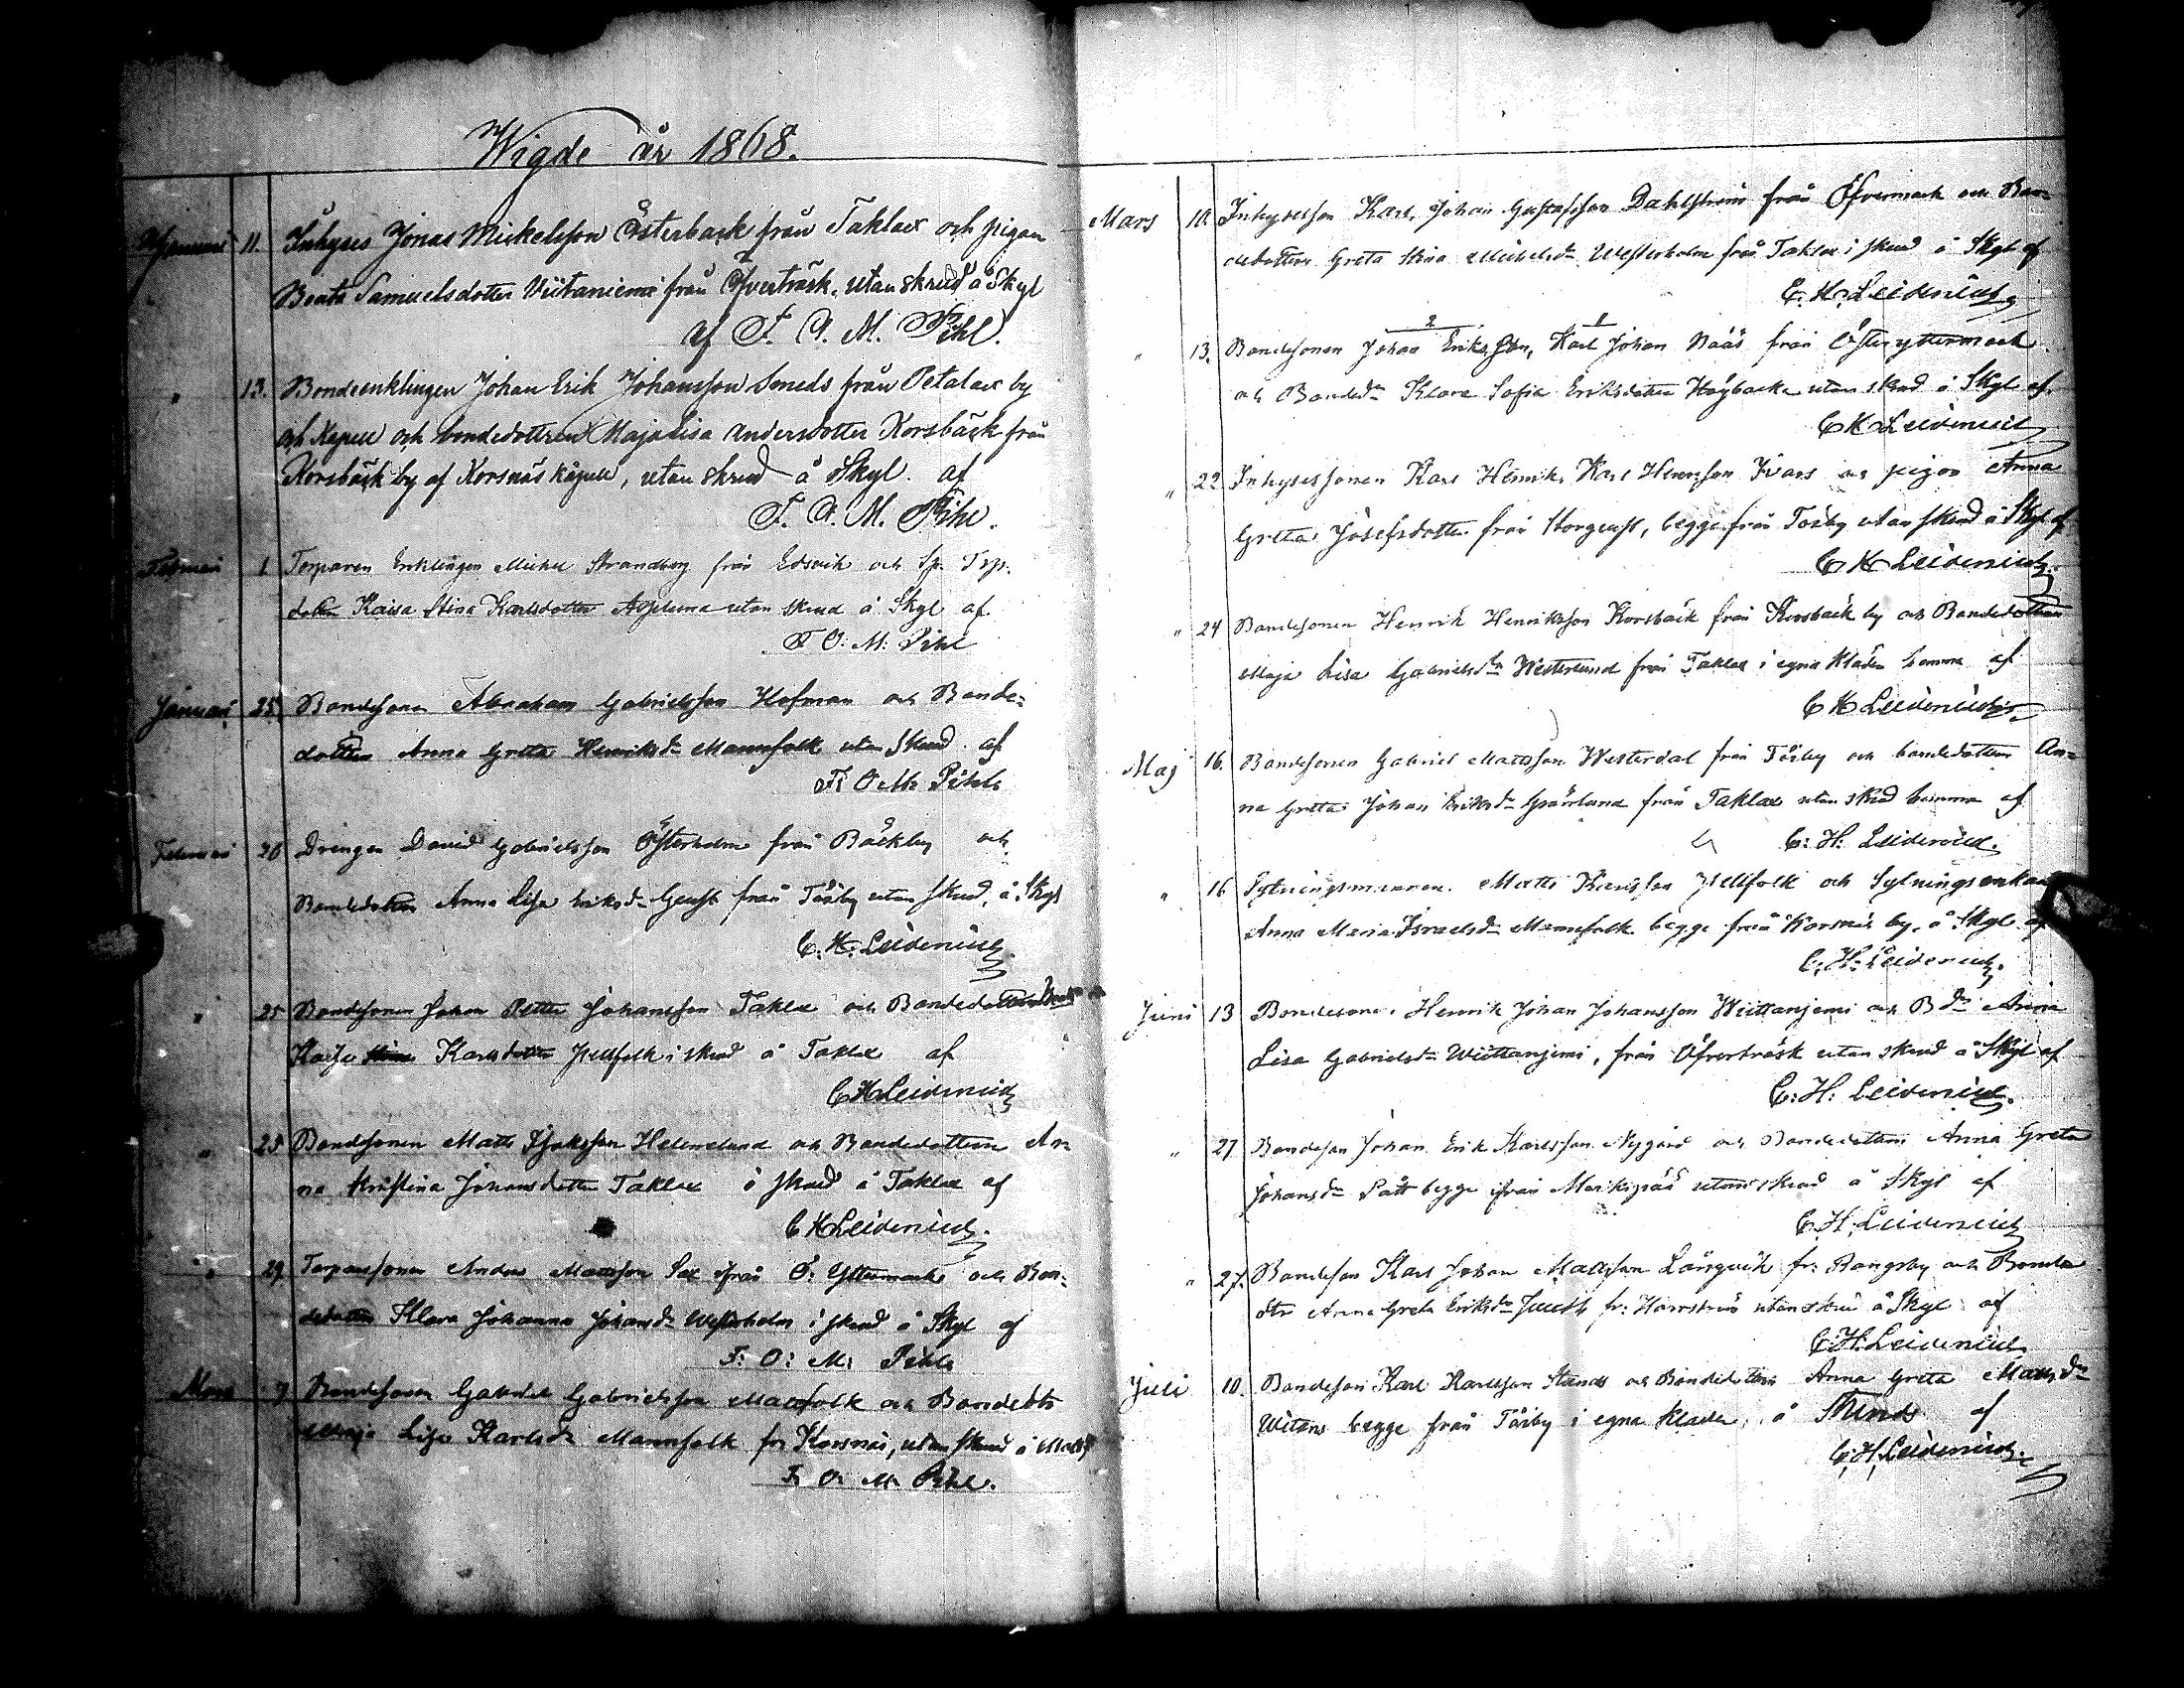 Wigde år 1868.
Januari 11. Inhyses Jonas Mickelsson Österback från Taklax och pigan
Beata Samuelsdotter Wiitaniemi från Öfverträsk, utan skrud å Skyl
af F. O. M. Pihl.
" 13. Bondeenklingen Johan Erik Johansson Soneds från Petalax by
och Kapell och bondedottren Maja Lisa Andersdotter Korsbäck från
Korsbäck by af Korsnäs kapell, utan skrud å Skyl. af
F. O. M. Pihl.
Februari 1 Torparen Enklingen Mickel Strandberg från Edsvik och Sp. Torp.
dottr Kaisa Stina Karlsdotter utan skrud å Skyl af
F O: M: Pihl
Januari 25. Bondesonen Abraham Gabrielsson Hofman och Bonde-
dottren Anna Greta Henriksdr Mannfolk utan skrud af
F: O: M: Pihl
Februari 20 Drengen David Gabrielsson Österholm från Bäckby och
Bondedottren Anna Lisa Eriksdr Geust från Töjby utan skrud, å Skyl
C. H. Leidenius.
" 25 Bondesonen Johan Petter Johansson Taklax och Bondedottren
Kajsa Karlsdotter Jullfolk i skrud å Taklax af
C H Leidenius
" 25 Bondesonen Matts Isaksson Helenelund och Bondedottren An-
na Kristina Johansdotter Taklax i skrud å Taklax af
C H Leidenius.
" 29. Torparesonen Anders Mattsson Sax från Ö: Yttermark och Bon-
dedottren Klara Johanna Johansdr Westerholm i skrud å Skyl af
F: O: M: Pihl
Mars 7 Bondesonen Gabriel Gabrielsson och Bondedotr
Maja Lisa Karlsdr Mannfolk fr. Korsnäs, utan skrud å
F. O. M. Pihl.
Mars 10. Inhysesson Karl Johan Gustafsson Dahlström från Öfvermark och Bon-
dedottren Greta Stina Mickelsdr Westerholm från Taklax i skrud å Skyl af
C. H. Leidenius
2 1
" 13. Bondesonen Johan Eriksson, Karl Johan Nääs från Österyttermark
och Bondedr Klara Sofia Eriksdotter Högbacka utan skrud å Skyl af.
C H Leidenius
" 22 Inhysessonen Karl Henrik Karl Henrsson Ivars och pigan Anna
Greta Josefsdotter från Storgeust, begge från Töjby utan skrud å Skyl af
C H Leidenius.
" 24 Bondesonen Henrik Henriksson Korsbäck från Korsbäck by och Bondedottren
Maja Lisa Gabrielsdr Westerlund från Taklax i egna kläder hemma af
C H Leidenius
Maj 16. Bondesonen Gabriel Mattsson Westerdal från Töjby och bondedottren An-
na Greta Johan Eriksdr Granlund från Taklax utan skrud hemma af
C: H: Leidenius.
" 16 Sytningsmannen Matts Karlsson Jullfolk och Sytningsenkan
Anna Maria Israelsdr Mannfolk begge från Korsnäs by, å Skyl af
C. H: Leidenius.
Juni 13 Bondesonen Henrik Johan Johansson Wiittanjemi och Bdr Anna
Lisa Gabrielsdr Wiittanjemi, från Öfverträsk utan skrud å Skyl af
C: H: Leidenius.
" 27 Bondeson Johan Erik Karlsson Nygård och Bondedottren Anna Greta
Johansdr Pått begge från utan skrud å Skyl af
C. H. Leidenius
" 27. Bondeson Karl Johan Mattsson Långvik fr: Rangsby och Bonde
dtr Anna Greta Eriksdr Juuth fr: Harrström utan skrud å Skyl af
C: H: Leidenius
Juli 10. Bondeson Karl Karlsson Stends och Bondedottren Anna Greta Mattsdr
Witens begge från Töjby i egna kläder, å Stends af
C. H. Leidenius.